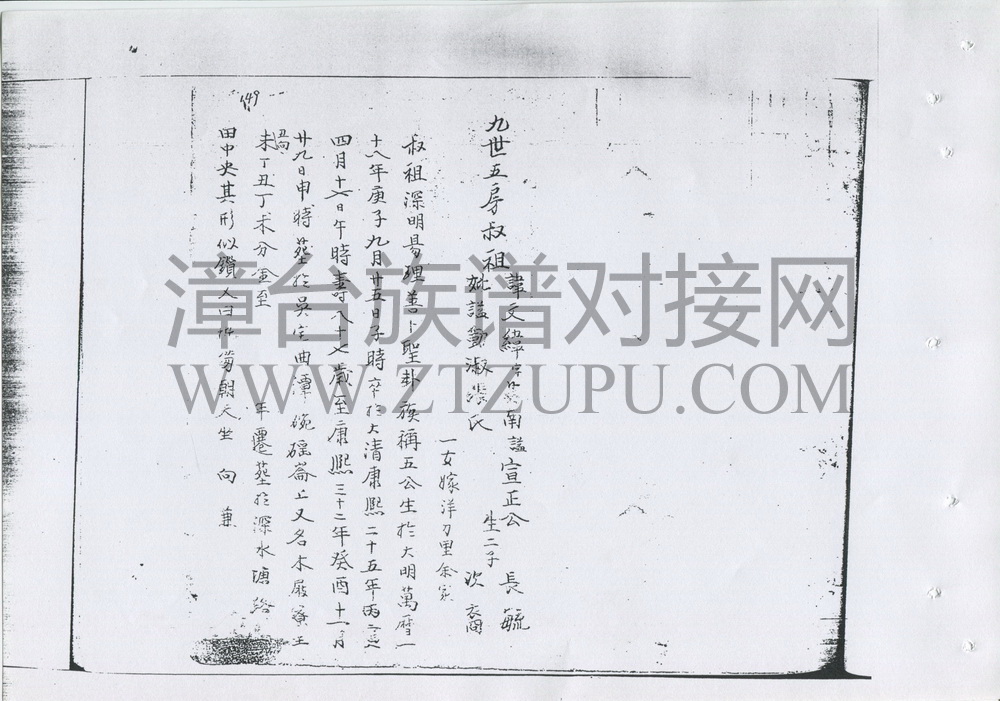 149
九世五房叔祖
諱文緯字 南諡宣正公 長毓
妣諡 淑張氏 生二子 次
一女嫁洋刀里余家
叔祖深明易理善卜聖卦族稱五公生於大明萬曆一
十八年庚子九月廿五日子時卒於大清康熙二十五年丙
四月十 日午時壽 八十七歲至康熙三十二年癸酉十一月
廿九日申時葬於吳宅曲潭碗磘崙上又名木屐寮
未丁丑丁未分金至 年遷葬於深水塘
田中央其形似鑽人曰 笏朝天坐 向 兼
漳台族谱对接网
WWW.ZTZUPU.COM